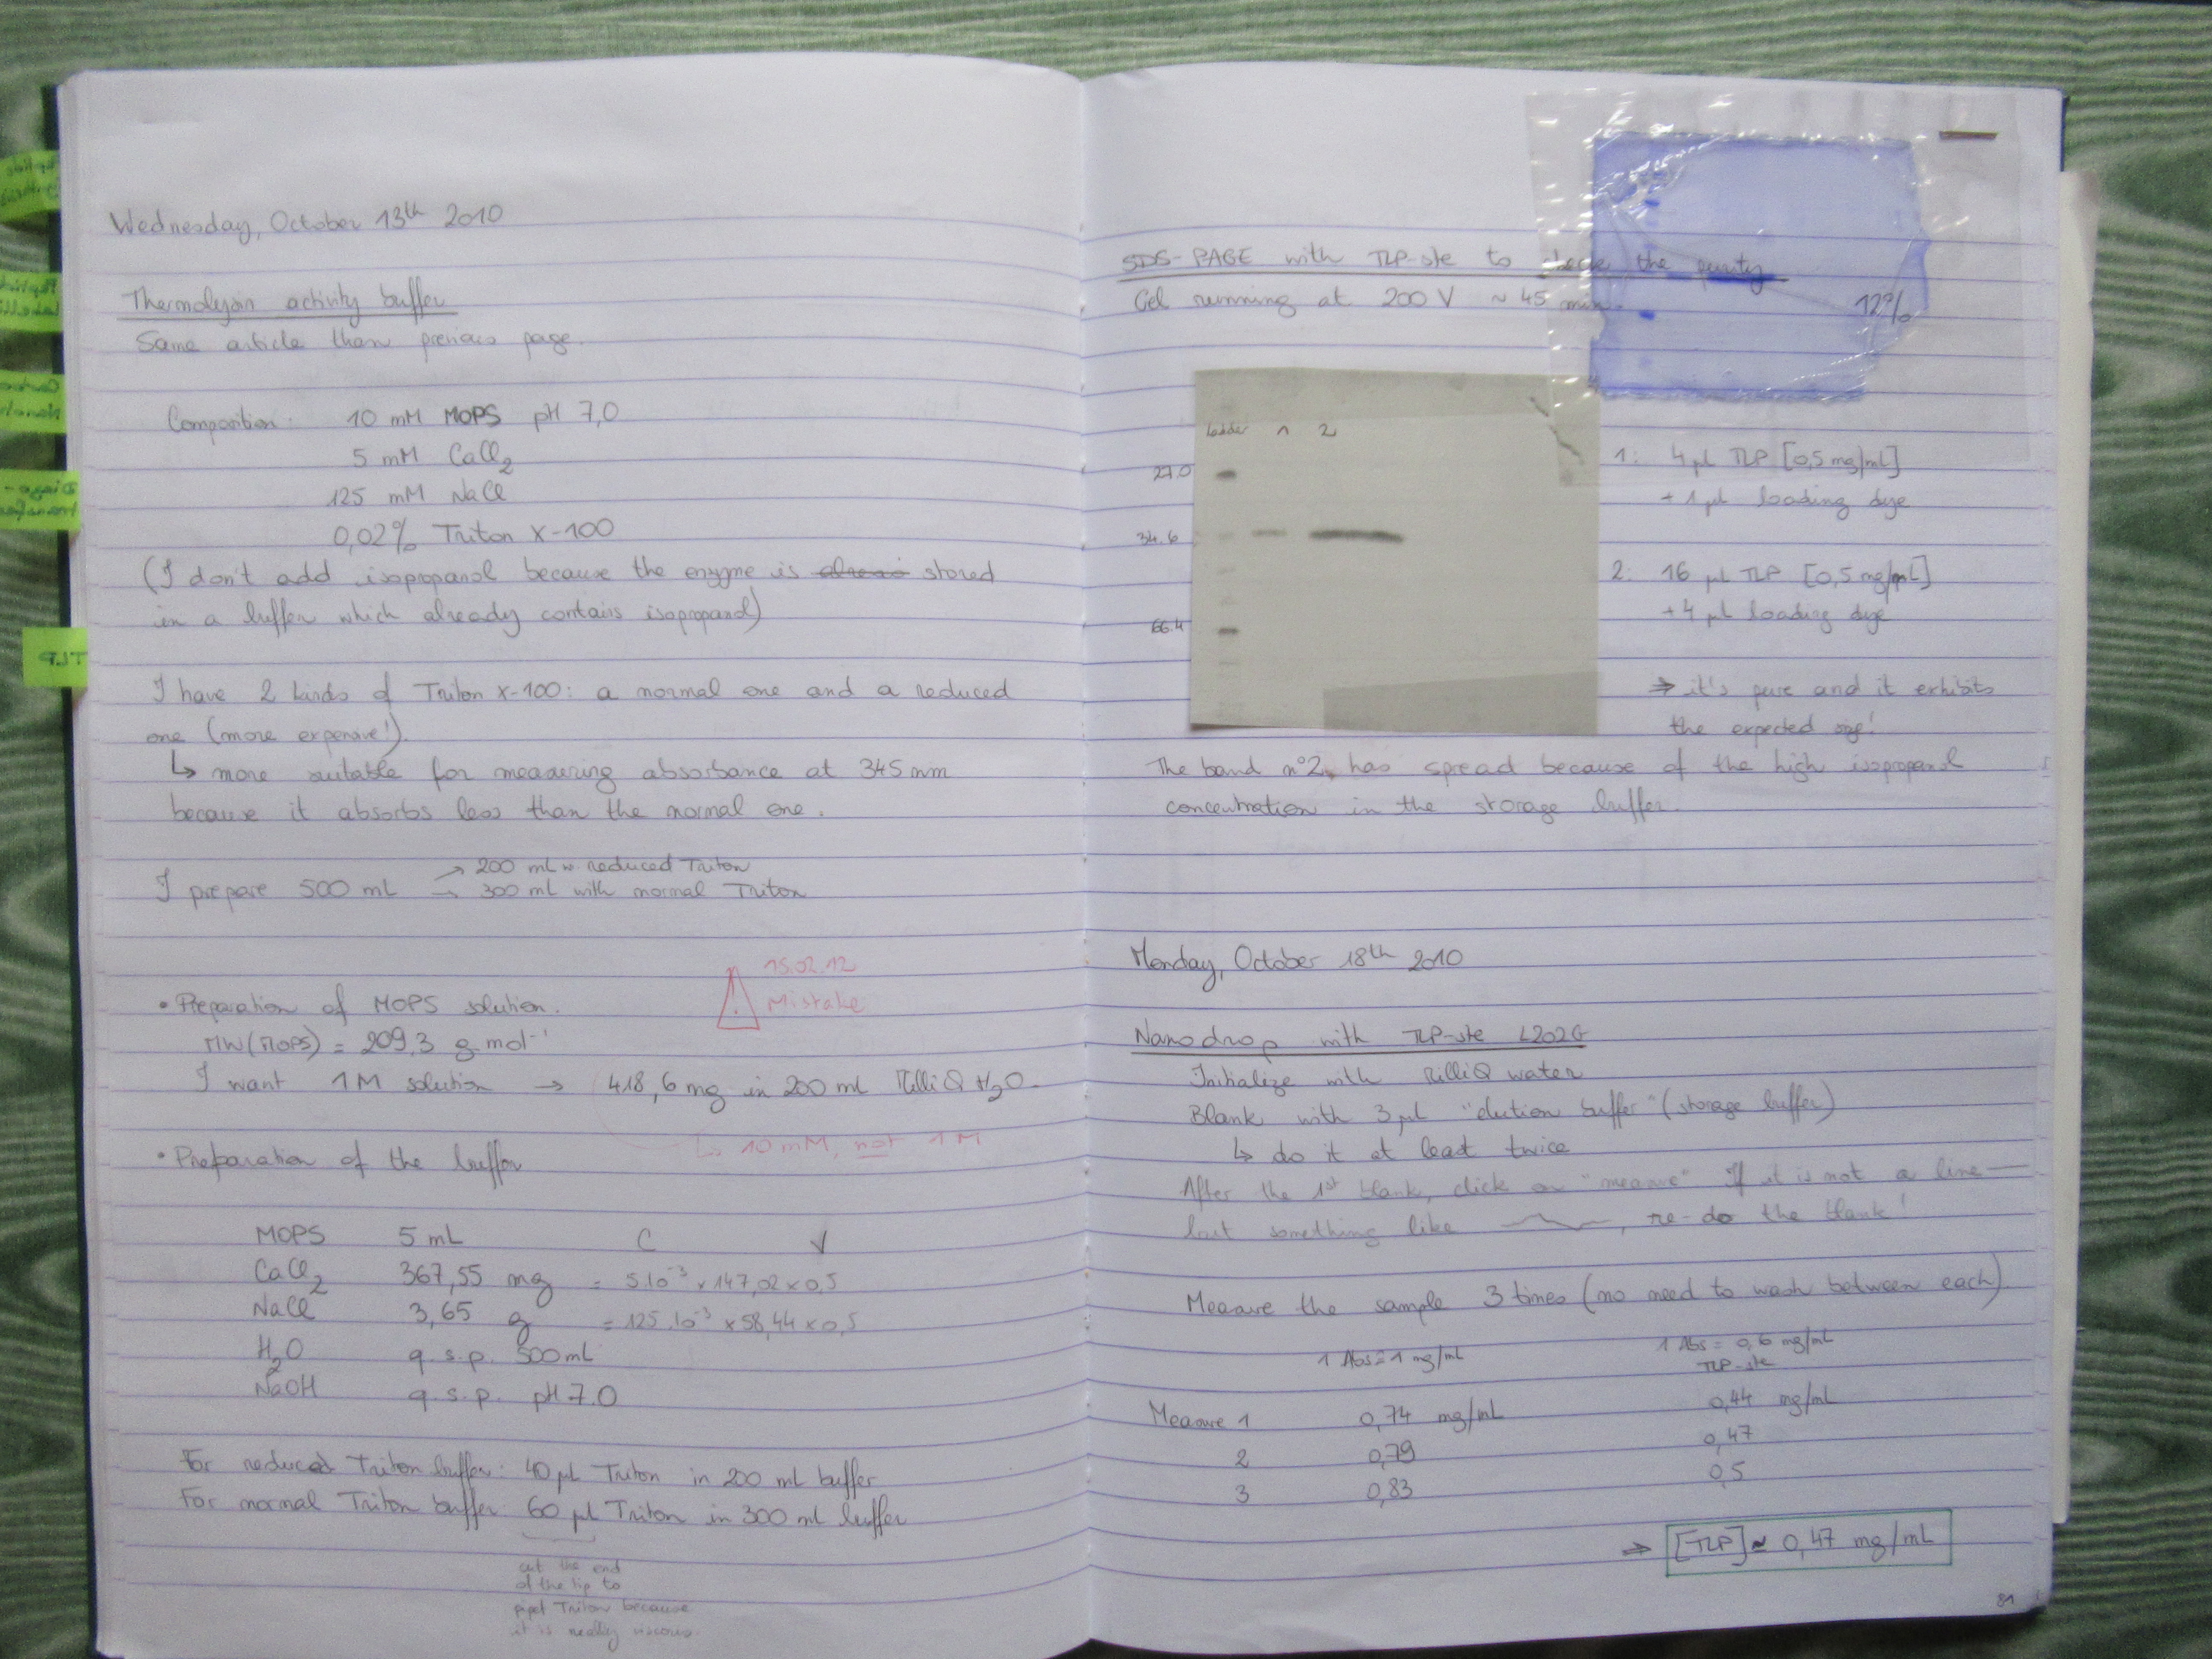 Wednesday, October 13th 2010
Thermolysin activity buffer
Same article than previous page.
Composition: 10 mM MOPS pH 7,0
5 mM CaCl2
125 mM NaCl
0,02% Triton X-100
(I don't add isopropanol because the enzyme is stored
in a buffer which already contains isopropanol)
I have 2 kinds of Triton X-100: a normal one and a reduced
one (more expensive!).
↳ more suitable for measuring absorbance at 345 nm
because it absorbs less than the normal one.
I prepare 500 mL → 200 mL w. reduced Triton
→ 300 mL with normal Triton
15.02.12
Mistake
• Preparation of MOPS solution.
MW(MOPS) = 209,3 g.mol-1
I want 1M solution → 418,6 mg in 200 ml MilliQ H2O.
↳ 10 mM, not 1 M
• Preparation of the buffer
MOPS 5 mL C V
CaCl2 367,55 mg = 5.10-3 x 147,02 x 0,5
NaCl 3,65 g = 125.10-3 x 58,44 x 0,5
H2O q.s.p. 500 mL
NaOH q.s.p. pH 7.0
For reduced Triton buffer: 40 µl Triton in 200 ml buffer
For normal Triton buffer: 60 µl Triton in 300 ml buffer
cut the end
of the tip to
pipet Triton because
it is really viscous.
TLP
SDS-PAGE with TLP-ste to check the purity
Gel running at 200 V ~ 45 min.
12%
Ladder 1 2
27.0
34.6
66.4
1: 4 µl TLP [0,5 mg/mL]
+ 1 µl loading dye
2: 16 µl TLP [0,5 mg/mL]
+ 4 µl loading dye
⇒ it's pure and it exhibits
the expected size!
The band n°2 has spread because of the high isopropanol
concentration in the storage buffer.
Monday, October 18th 2010
Nanodrop with TLP-ste L202G
Initialize with MilliQ water
Blank with 3 µl "elution buffer" (storage buffer)
↳ do it at least twice
After the 1st blank, click on "measure" If it is not a line —
but something like , re-do the blank!
Measure the sample 3 times (no need to wash between each)
1 Abs = 1 mg/mL 1 Abs = 0,6 mg/mL
TLP-ste
Measure 1 0,74 mg/mL 0,44 mg/mL
2 0,79 0,47
3 0,83 0,5
⇒ [TLP] ≈ 0,47 mg/mL
81